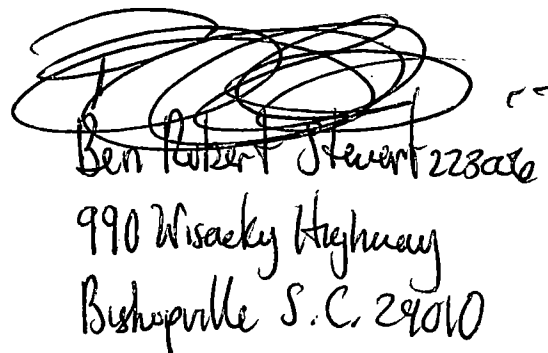 Ben Robert Stewart
990 Wisacky Highway
Bishopville S.C. 29010